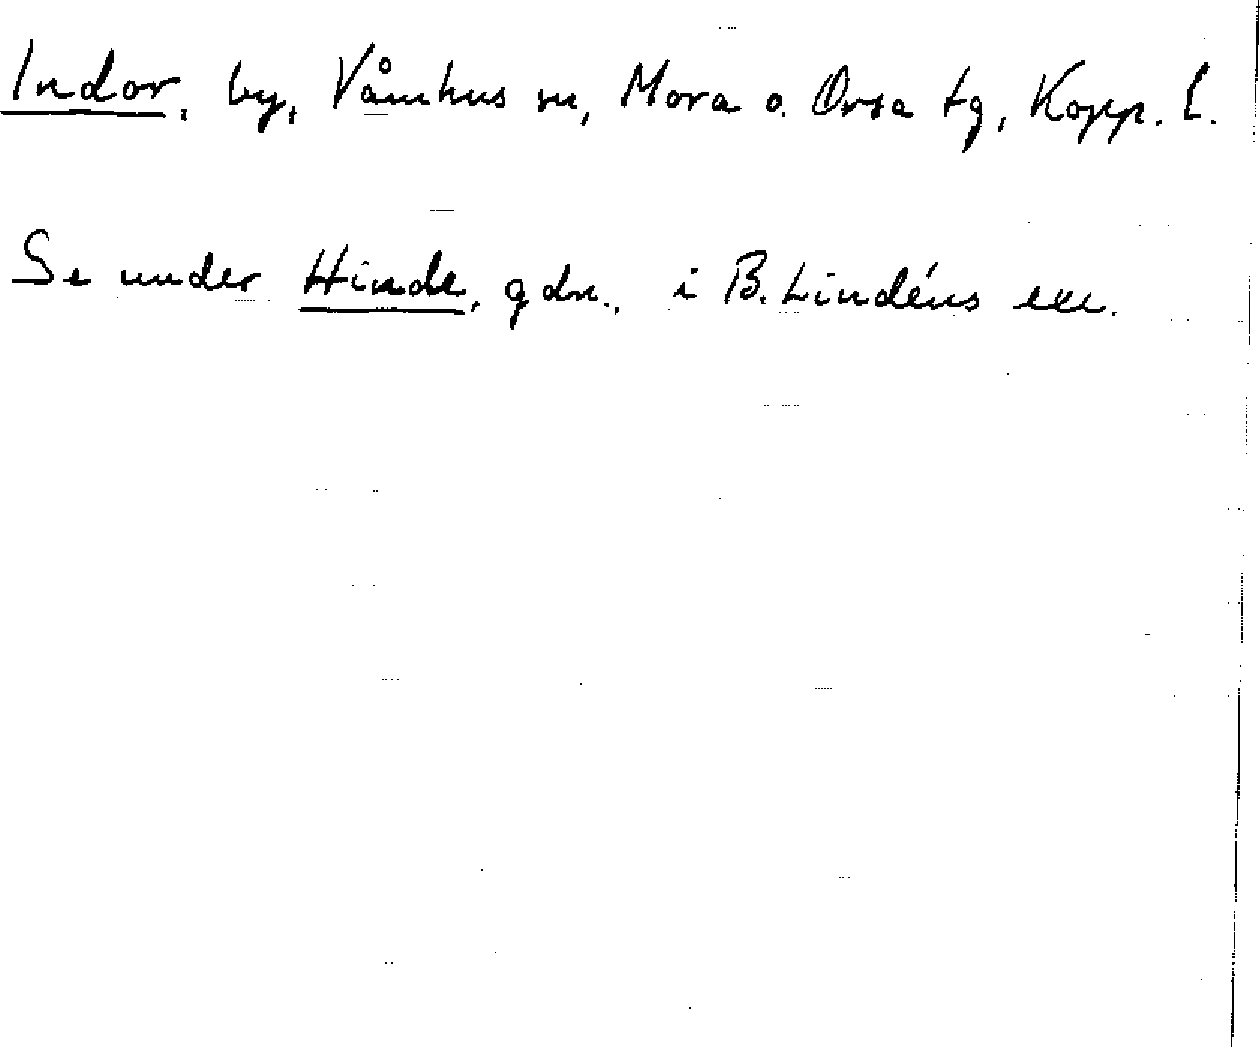 Indor, by, Våmhus sn, Mora o. Orsa tg, Kopp. l.
Se under Hinde, gdn., i B. Lindéns